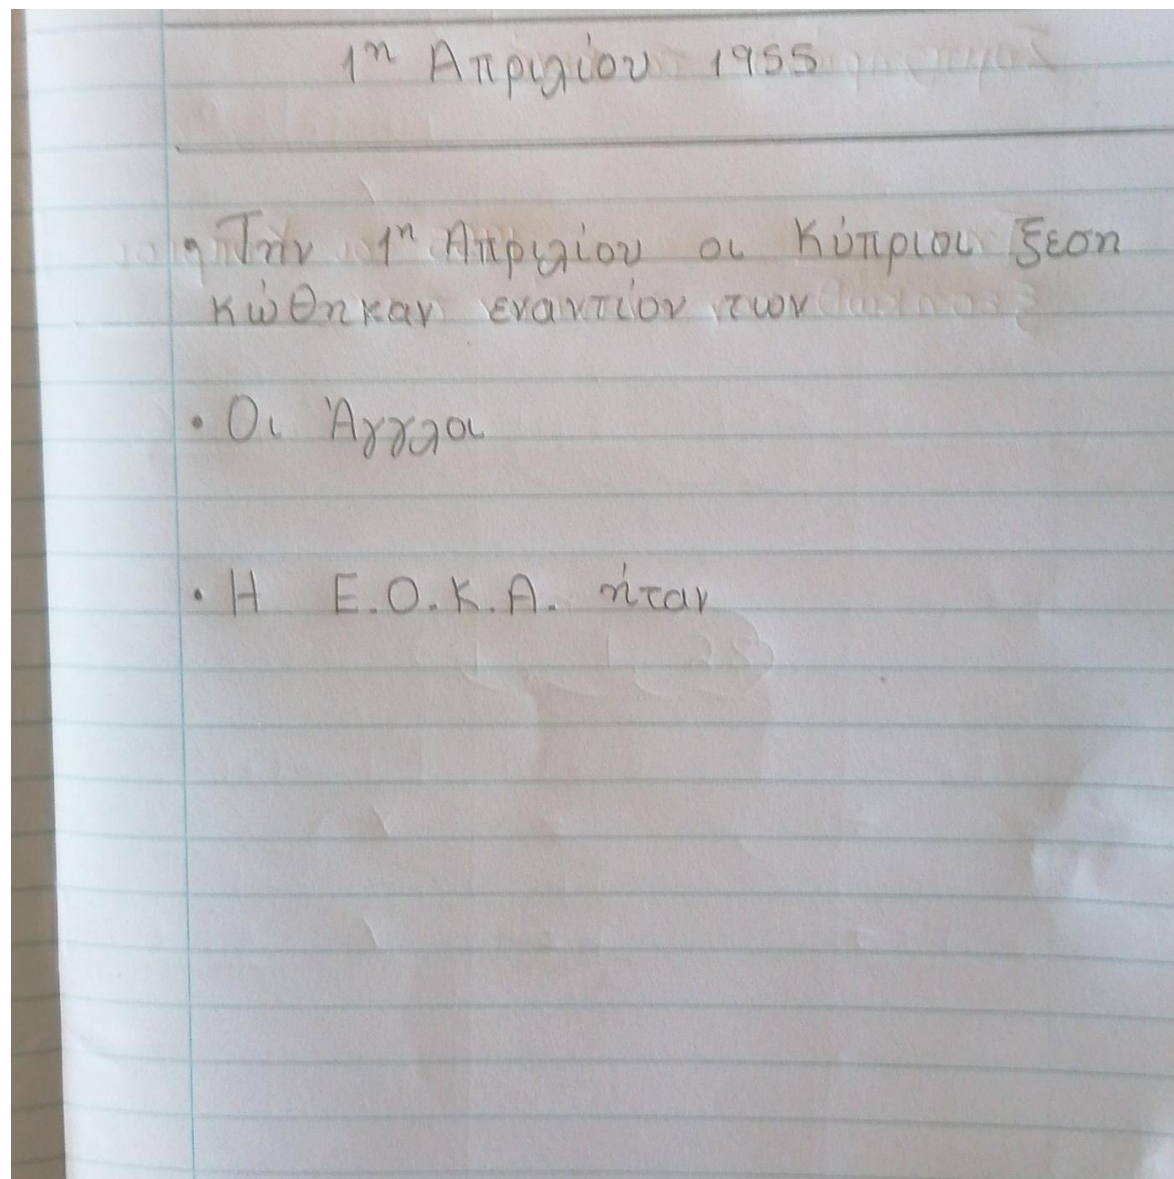 1η Απριλίου 1955
• Την 1η Απριλίου οι Κύπριοι ξεση
κώθηκαν εναντίον των
• Οι Άγγλοι
• Η Ε.Ο.Κ.Α. ήταν